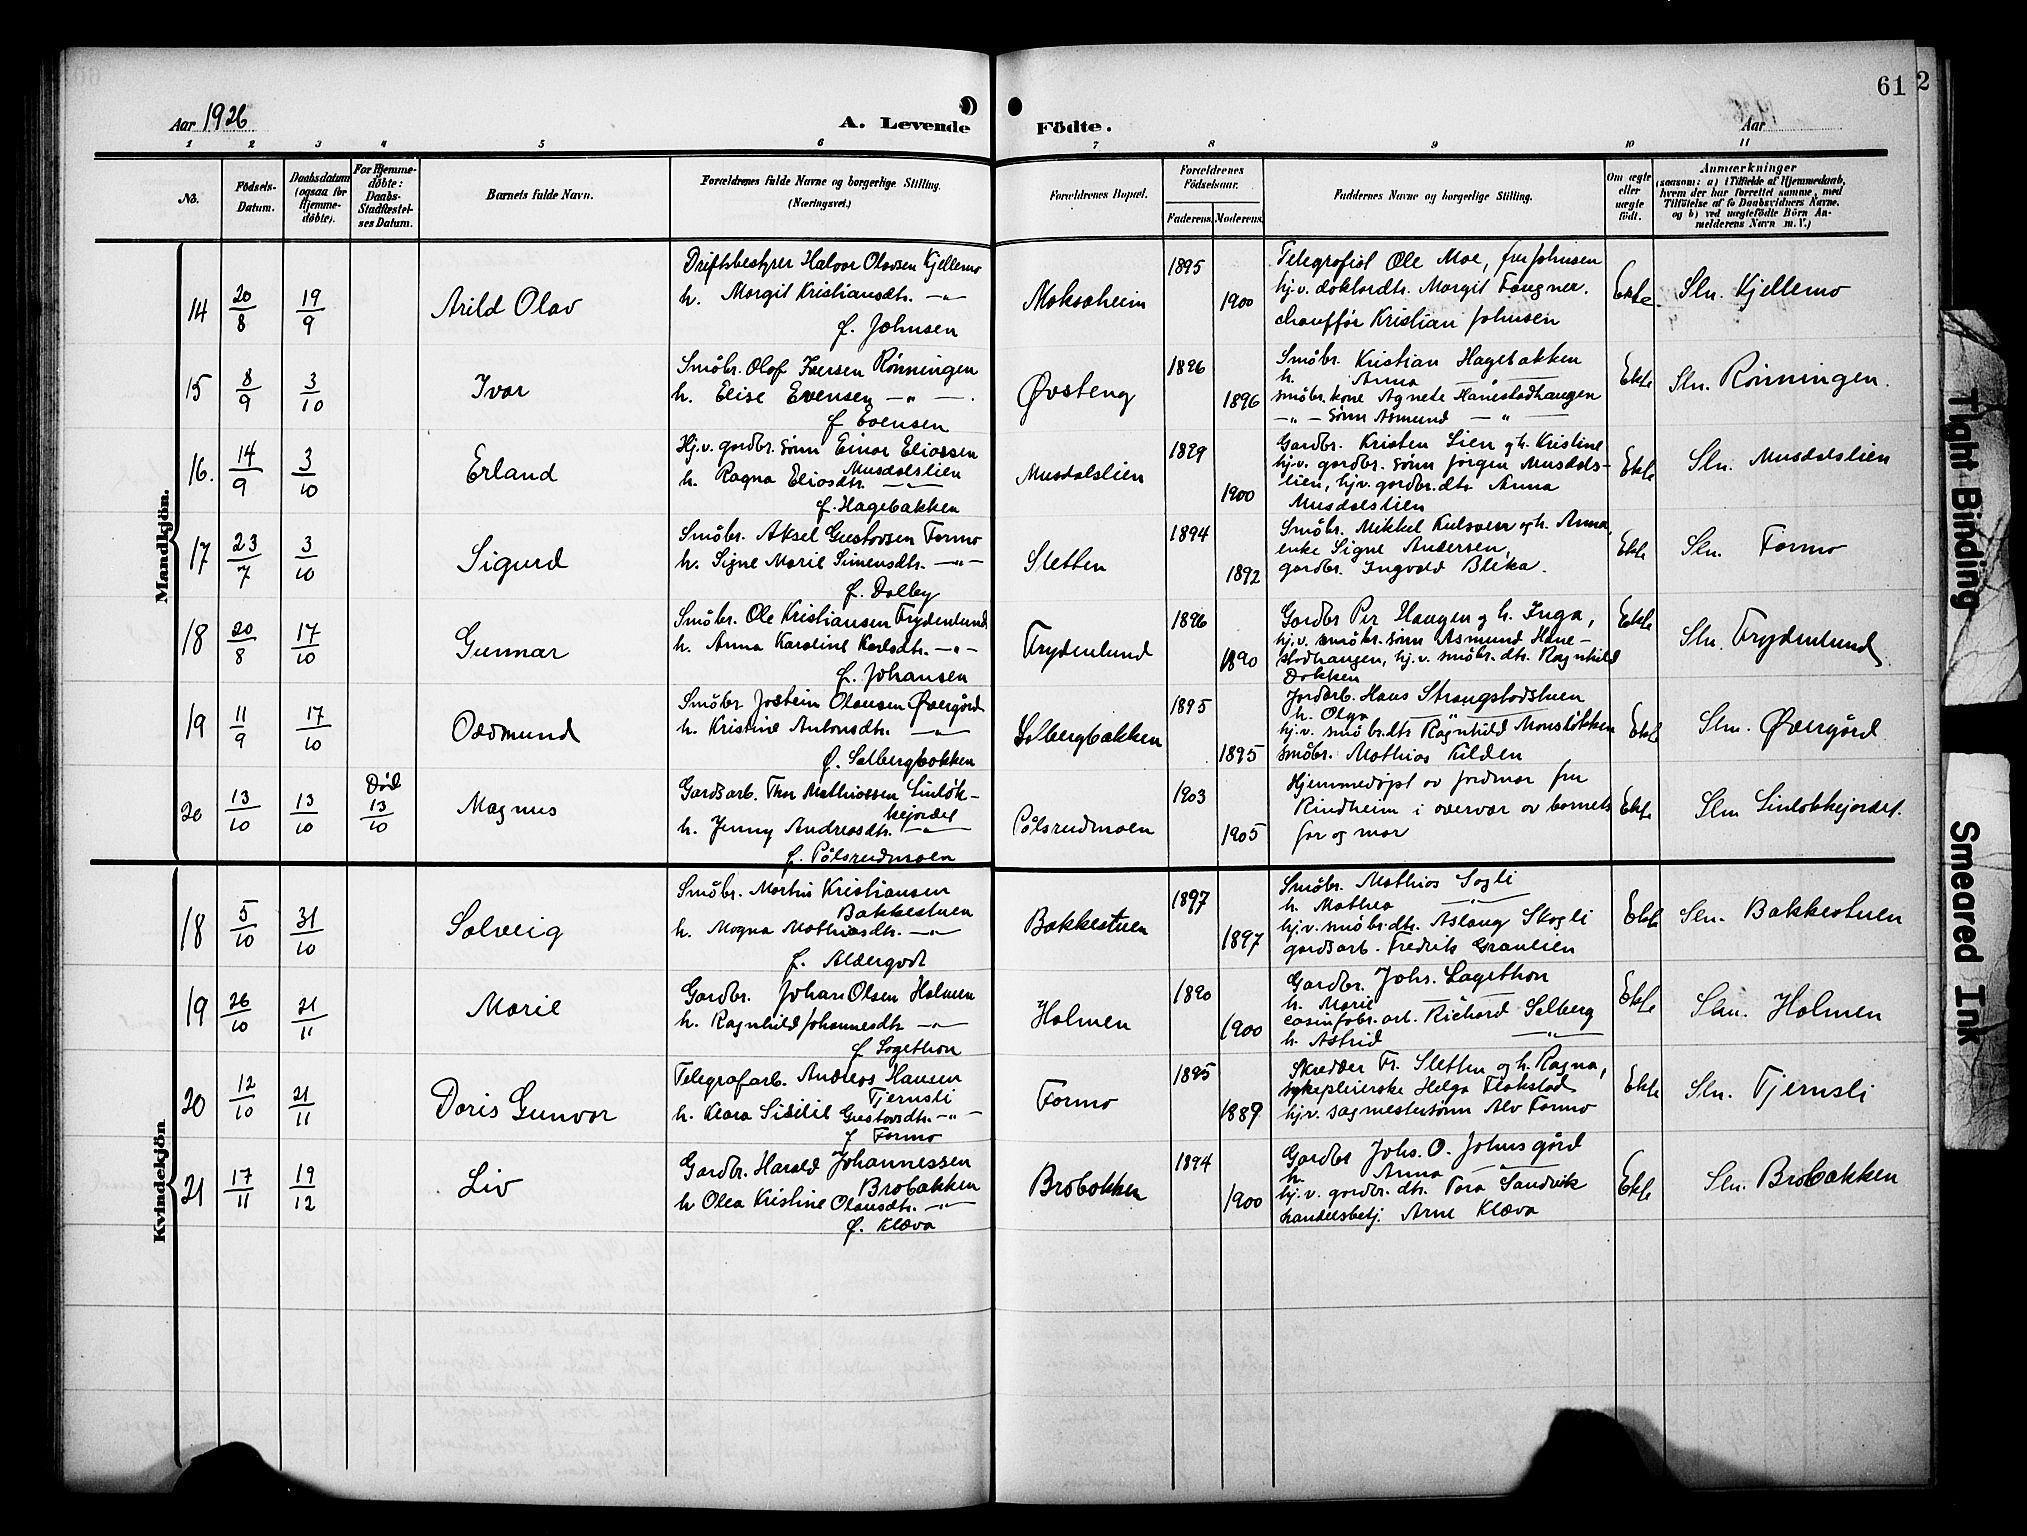 61
2
Aar 1926
A. Levende Födte.
Aar
1 2 3 4 5 6 7 8 9 10 11
No.
Fødsels-Datum.
Daabsdatum (ogsaa for Hjemme-døbte).
For Hjemme-døbte: Daabs-Stadfæstel-ses Datum.
Barnets fulde Navn.
Forældrenes fulde Navne og borgerlige Stilling. (Næringsvei.)
Forældrenes Bopæl.
Forældrenes Fødselsaar.
Faderens. Moderens.
Faddernes Navne og borgerlige Stilling.
Om ægte eller uægte født.
Anmærkninger
(saasom: a) i Tilfælde af Hjemmedaab,
hvem der har forrettet samme, med
Tilføielse af to Daabsvidners Navne,
og b) ved uægtefødte Börn An-
melderens Navn m. V.)
Mandkjön.
14 20/8 19/9 Arild Olav
Driftsbestyrer Halvor Olavsen Kjellemo
h. Margit Kristiansdtr. —"—
f. Johnsen
Moksaheim 1895 1900
Telegrafist Ole Moe, fru Johnsen
hj.v. doktordtr. Margit Faugner.
chauffør Kristian Johnsen
Ekte Sln. Kjellemo
15 8/9 3/10 Ivar
Småbr. Olaf Iversen Rönningen
h. Elise Evensen —"—.
f Evensen
Øvsteng 1896 1896
Småbr. Kristian Hagebakken
h. Anna —"—
småbr.kone Agnete Hånestadhaugen
—"— sönn Asmund —"—
Ekte Sln. Rönningen.
16. 14/9 3/10 Erland
Hj.v. gardbr. sönn Einar Eliassen
Musdalslien
h. Ragna Eliasdtr. —"—
f. Hagebakken
Musdalslien 1899 1900
Gardbr. Kristen Lien og h. Kristine
hj.v. gardbr. sönn Jörgen Musdals-
lien, hj.v. gardbr.dtr Anna
Musdalslien
Ekte Sln. Musdalslien
17 23/7 3/10 Sigurd
Småbr. Aksel Gustavsen Formo
h. Signe Marie Simensdtr. —"—
f. Dalby
Sletten 1894 1892
Småbr. Mikkel Kulsveen og h. Anna,
enke Signe Andersen,
gardbr. Ingvald Blika.
Ekte Sln. Formo
18 20/8 17/10 Gunnar
Småbr. Ole Kristiansen Frydenlund
h. Anna Karoline Karlsdtr. —"—
f. Johansen
Frydenlund 1896 1890
Gardbr Per Haugen og h. Inga,
hj.v. småbr. sönn Asmund Håne-
stadhaugen, hj.v. småbr. dtr. Ragnhild
Dokken
Ekte Sln. Frydenlund
19 11/9 17/10 Oddmund
Småbr Jostein Olausen Øvergård
h. Kristine Antonsdtr. —"—
f. Solbergbakken
Solbergbakken 1895 1895
Jordarb. Hans Strangstadstuen
h. Olga —"—
hj.v. småbr.dtr Ragnhild Monsløkken
småbr. Mathias Kilden
Ekte Sln. Øvergård
20 13/10 13/10 Död 13/10 Magnus
Gardsarb. Thor Mathiassen Linløk-
kejordet
h. Jenny Andreasdtr. —"—
f. Pålsrudmoen
Pålsrudmoen 1903 1905
Hjemmedöpt av jordmor fru
Rindheim i overvær av barnets
far og mor
Ekte Sln Linløkkejordet.
Kvindekjön
18 5/10 31/10 Solveig
Småbr. Martin Kristiansen
Bakkestuen
h. Magna Mathiasdtr. —"—
f. Aldergodt
Bakkestuen 1897 1897
Småbr. Mathias Sagli
h. Mathea —"—
hj.v. småbr.dtr. Aslaug Skogli
gardsarb. Fredrik Granlien
Ekte Sln. Bakkestuen
19 26/10 21/11 Marie
Gardbr. Johan Olsen Holmen
h. Ragnhild Johannesdtr —"—
f Lagethon
Holmen 1890 1900
Gardbr. Johs. Lagethon
h. Marie —"—
casinfabr.arb. Richard Solberg
h. Astrid —"—
Ekte Sln. Holmen
20 12/10 21/11 Doris Gunvor
Telegrafarb. Andreas Hansen
Tjernsli
h. Klara Sisilie Gustavsdtr. —"—
f Formo
Formo 1895 1889
Skredder Fr. Sletten og h. Ragna,
sykepleierske Helga Flakstad
hj.v. sagmestersönn Alv Formo
Ekte Sln. Tjernsli
21 17/11 19/12 Liv
Gardbr. Harald Johannessen
Brobakken
h Olea Kristine Olausdtr. —"—
f. Klæva
Brobakken 1894 1900
Gardbr Johs. O. Johnsgård
h. Anna —"—
hj.v. gardbr. dtr. Tora Sandvik
handelsbetj. Arne Klæva
Ekte Sln. Brobakken
Tight Binding
Smeared Ink